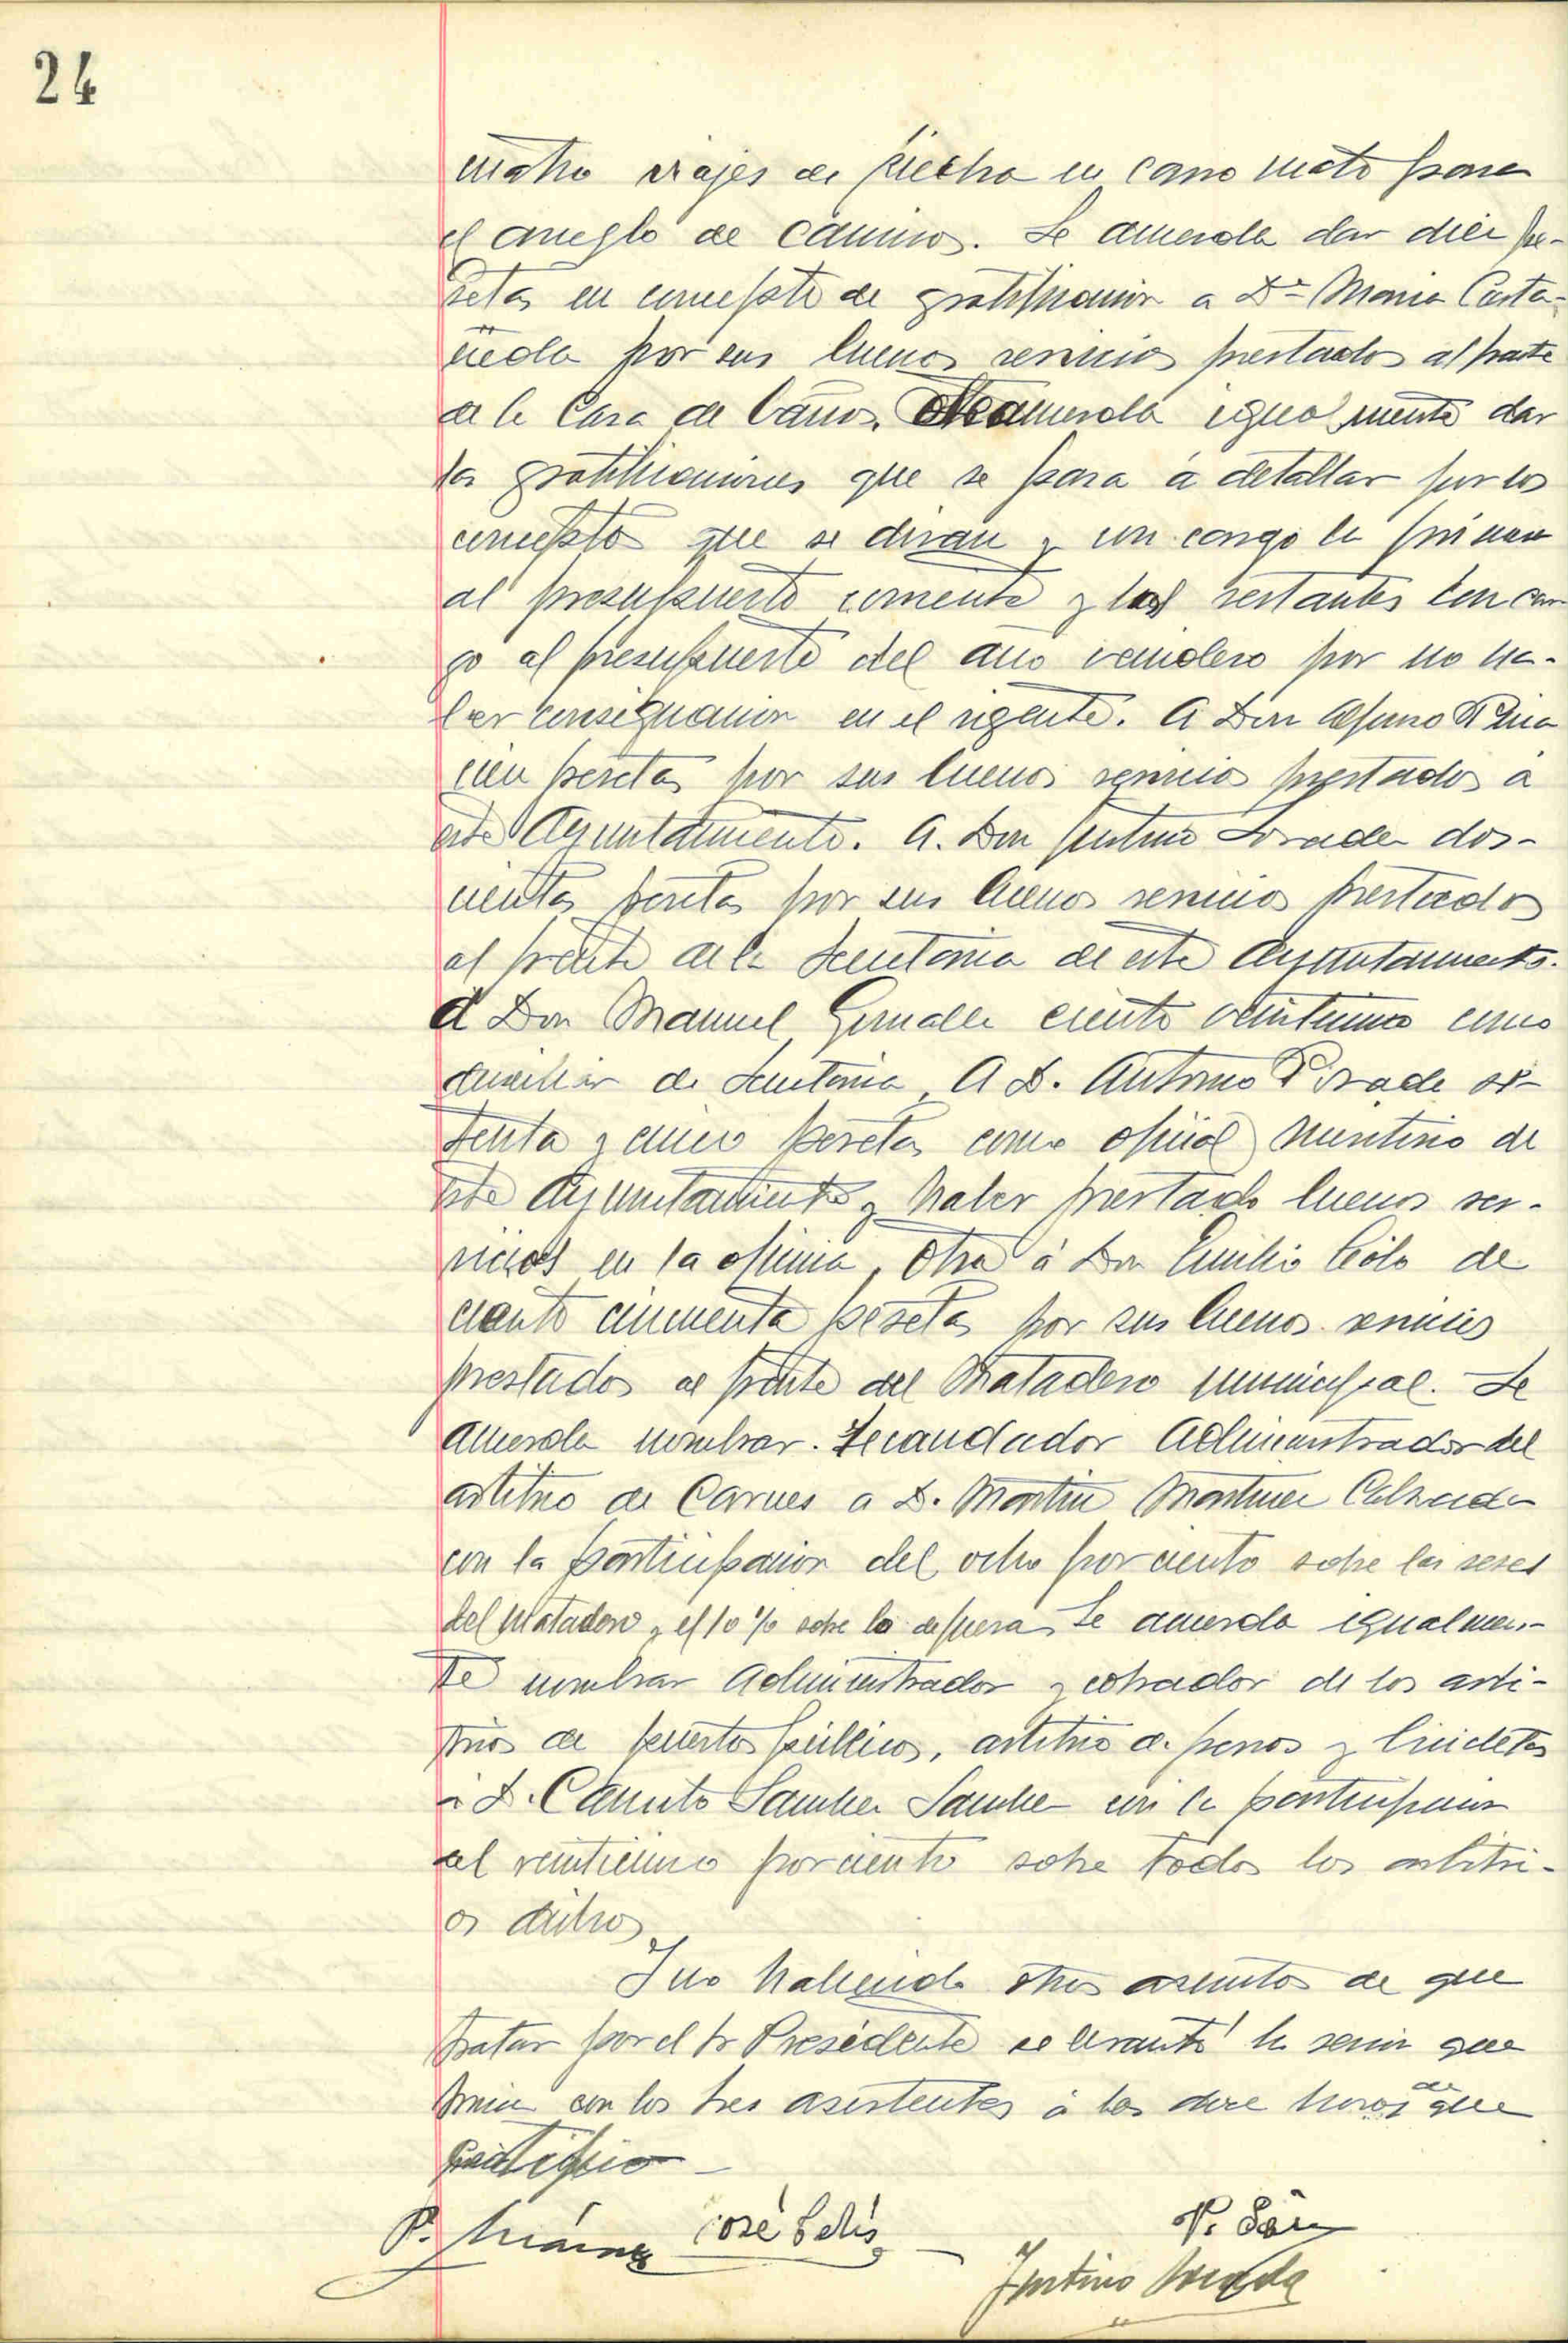 24
cuatro viajes de piedra en carro mato para
el arreglo de caminos. Se acuerda dar diez pe-
setas en concepto de gratificacion a Dª Maria Casta-
ñeda por sus buenos servicios prestados al frente
de la Casa de baños. Se acuerda igualmente dar
las gratificaciones que se pasa á detallar por los
conceptos que se diran y con cargo la primera
al presupuesto corriente y las restantes con car-
go al presupuesto del año venidero por no ha-
ber consignacion en el vigente. A Don
cien pesetas por sus buenos servicios prestados á
este Ayuntamiento. A. Don Justino Losada dos-
cientas pesetas por sus buenos servicios prestados
al frente de la Secretaria de este Ayuntamiento.
A Don Manuel ciento veinticinco como
auxiliar de Secretaria, A D. Antonio se-
tenta y cinco pesetas como oficial de
este Ayuntamiento y haber prestado buenos ser-
vicios en la oficina, Otra á Don Emilio de
ciento cincuenta pesetas por sus buenos servicios
prestados al frente del Matadero municipal. Se
acuerda nombrar. Recaudador Administrador del
arbitrio de Carnes a D. Martin Martinez Calzada
con la participacion del ocho por ciento sobre las reses
del Matadero y el 10 % sobre la de fuera Se acuerda igualmen-
te nombrar Administrador y cobrador de los arbi-
trios de puestos publicos, arbitrio de perros y bicicletas
á D. Canuto Sanchez Sanchez con la participacion
del veinticinco por ciento sobre todos los arbitri-
os dichos
Y no habiendo otros asuntos de que
tratar por el Sr Presidente se levantó la sesion que
firma con los tres asistentes á las doce horas de que
certifico
P. José V.
Justino Losada